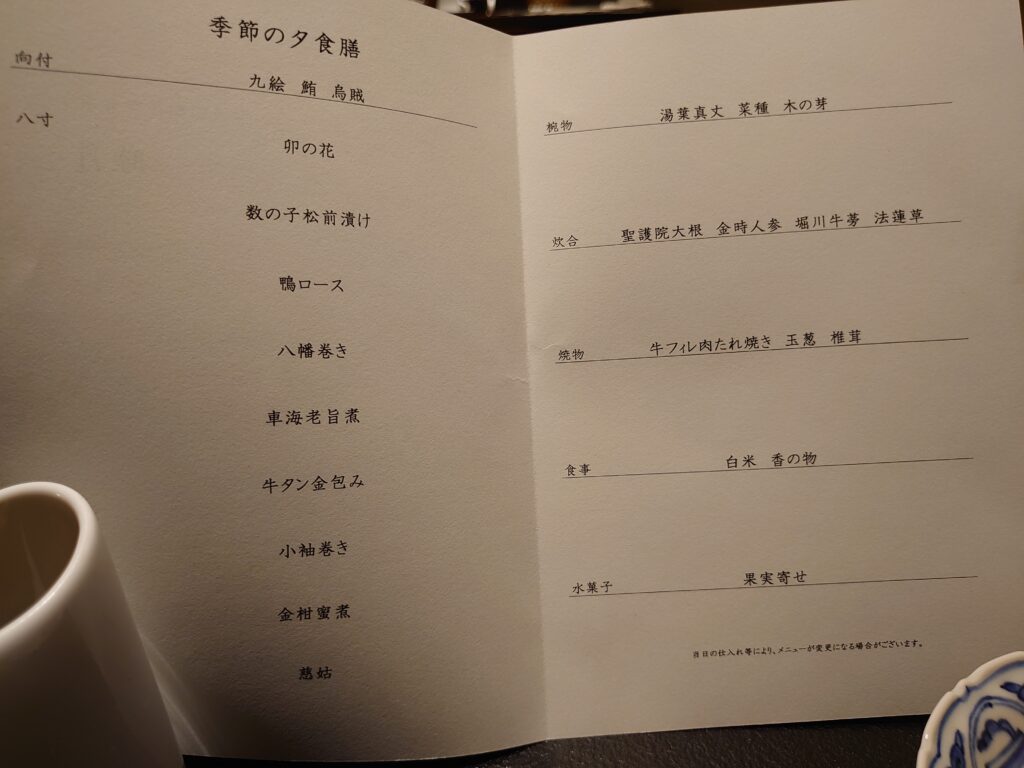 季節の夕食膳
向付
九絵 鮪 烏賊
八寸
卯の花
数の子松前漬け
鴨ロース
八幡巻き
車海老旨煮
牛タン金包み
小袖巻き
金柑蜜煮
慈姑
椀物 湯葉真丈 菜種 木の芽
炊合 聖護院大根 金時人参 堀川牛蒡 法蓮草
焼物 牛フィレ肉たれ焼き 玉葱 椎茸
食事 白米 香の物
水菓子 果実寄せ
当日の仕入れ等により、メニューが変更になる場合がございます。